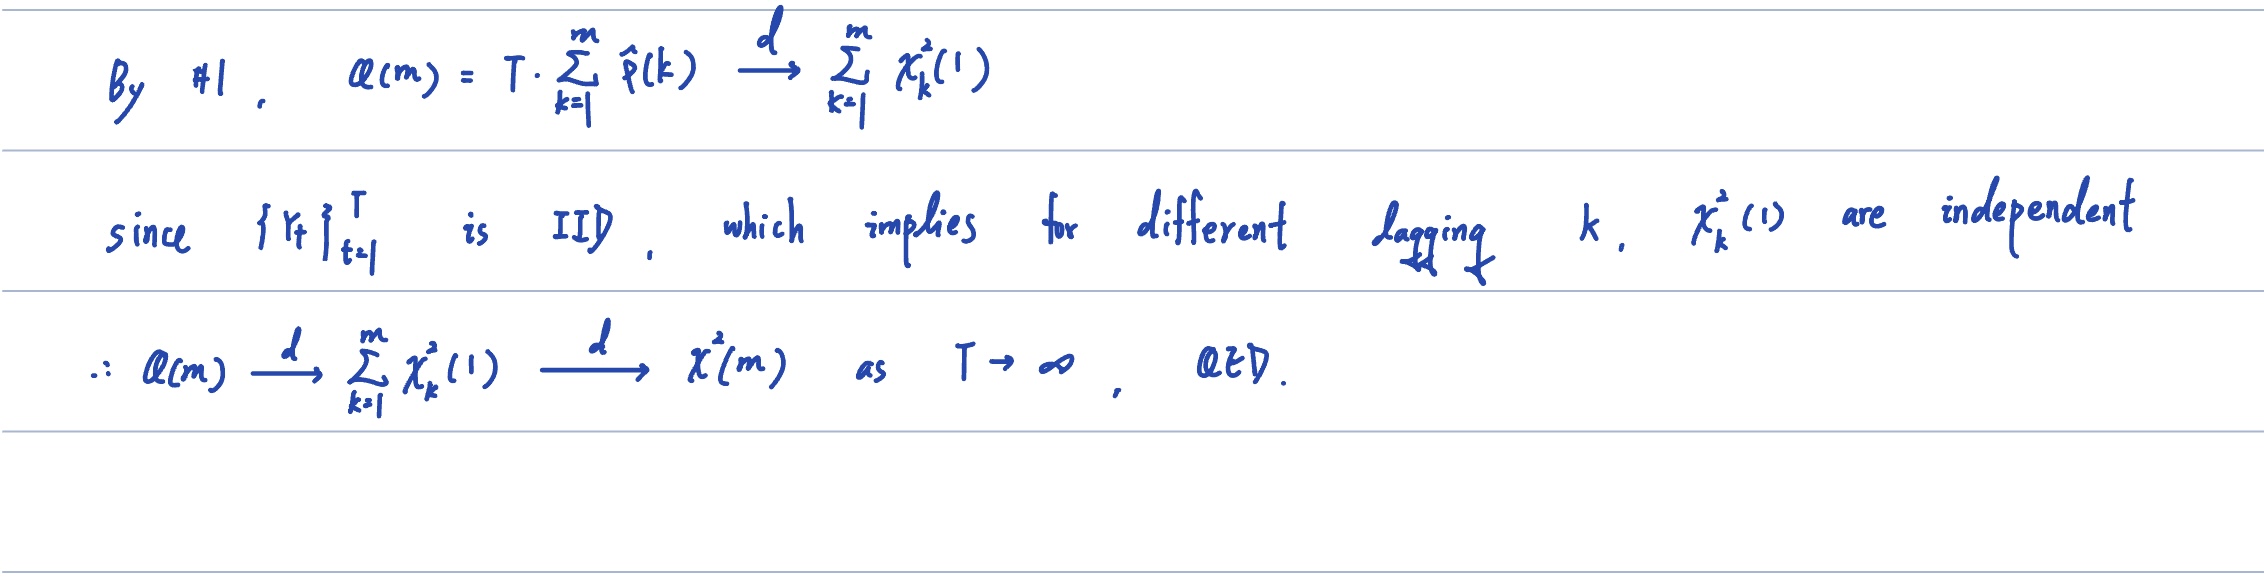 By #1, Q(m) = T · ∑_{k=1}^{m} ρ̂(k) →^{d} ∑_{k=1}^{m} χ²_k(1)
since {Y_t}_{t=1}^{T} is IID, which implies for different lagging k, χ²_k(1) are independent
∴ Q(m) →^{d} ∑_{k=1}^{m} χ²_k(1) →^{d} χ²(m) as T → ∞, QED.